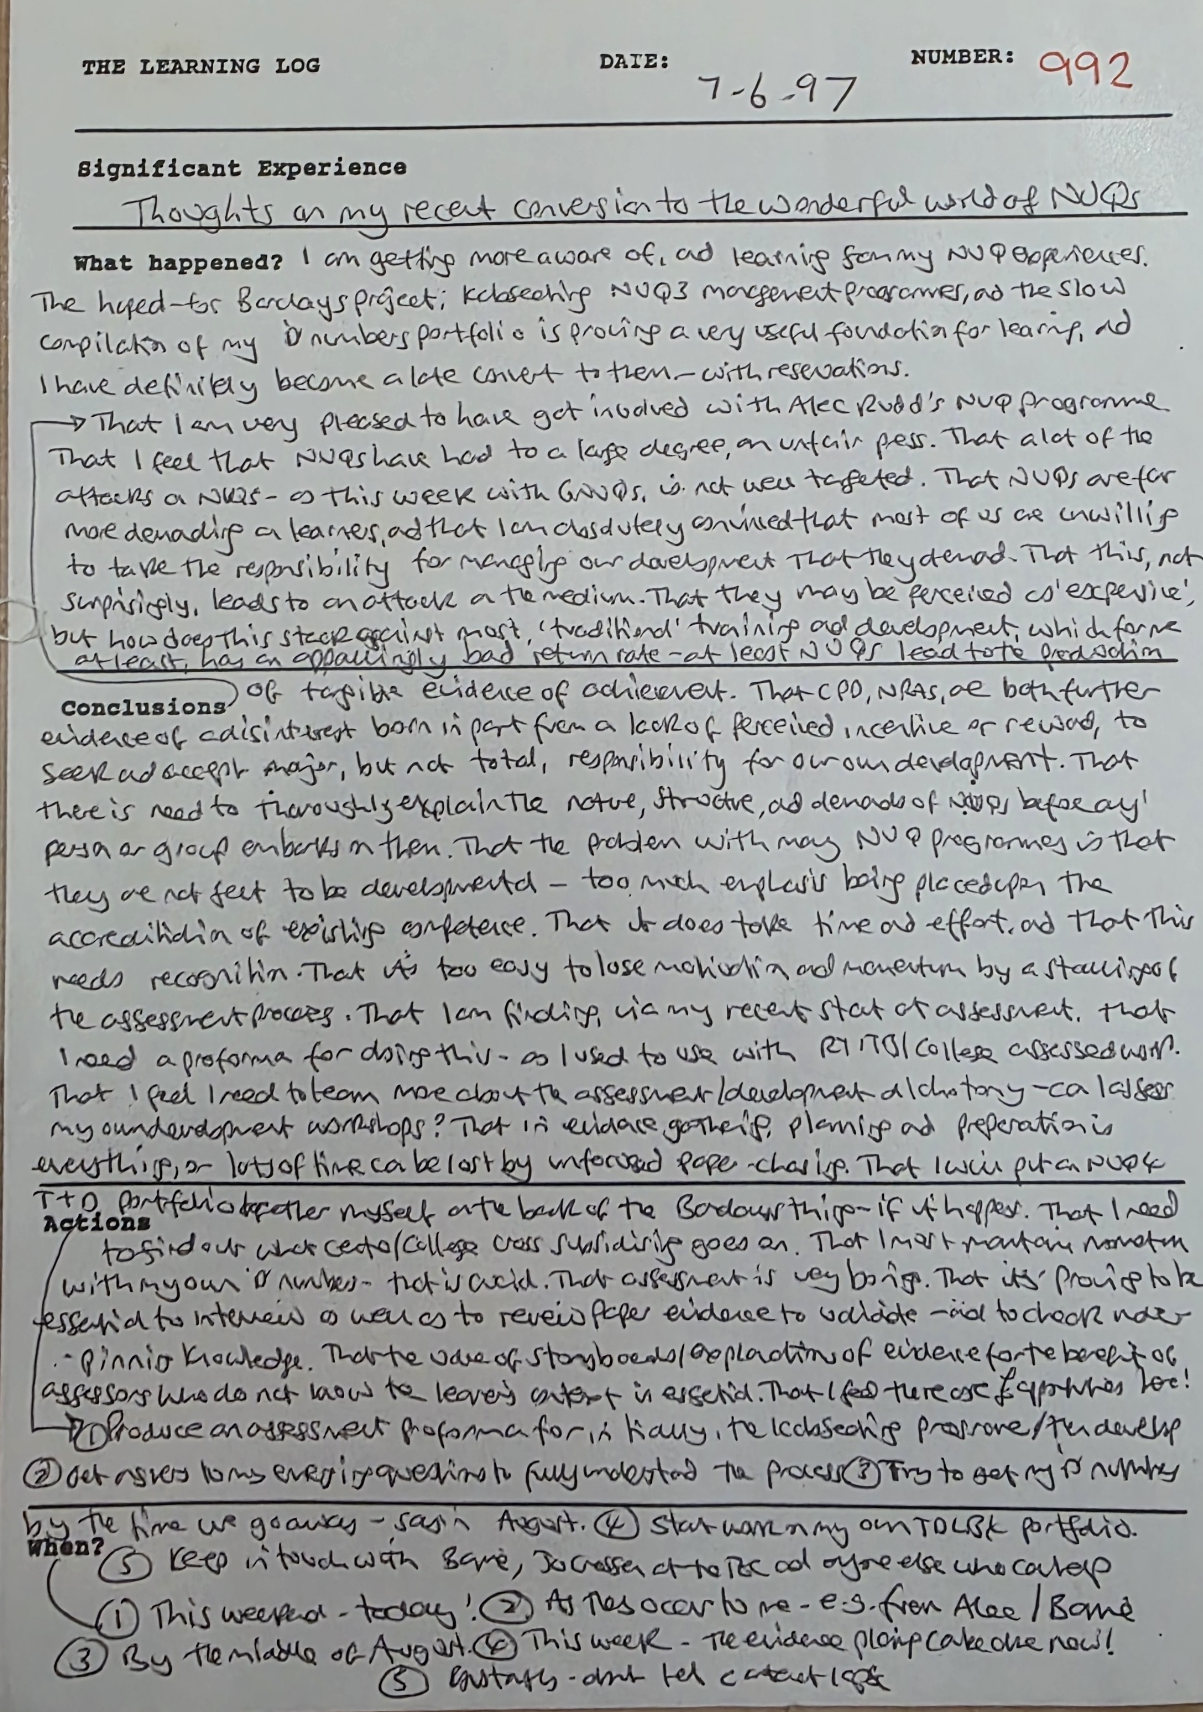 THE LEARNING LOG DATE: 7-6-97 NUMBER: 992
Significant Experience
Thoughts on my recent conversion to the wonderful world of NVQs
What happened? I am getting more aware of, and learning from my NVQ experiences.
The hoped-for Barclays project; Kcbseching NVQ3 management programmes, and the slow
compilation of my D numbers portfolio is proving a very useful foundation for learning, and
I have definitely become a late convert to them - with reservations.
→ That I am very pleased to have got involved with Alec Rudd's NVQ programme.
That I feel that NVQs have had to a large degree, an unfair press. That a lot of the
attacks on NVQs - as this week with GNVQs, is not well targeted. That NVQs are far
more demanding on learners, and that I am absolutely convinced that most of us are unwilling
to take the responsibility for managing our development that they demand. That this, not
surprisingly, leads to an attack on the medium. That they may be perceived as 'expensive',
but how does this stack against most, 'traditional' training and development, which for me
at least, has an appallingly bad return rate - at least NVQs lead to the production
Conclusions of tangible evidence of achievement. That CPD, NRAs, are both further
evidence of a disinterest born in part from a lack of perceived incentive or reward, to
seek and accept major, but not total, responsibility for our own development. That
there is need to thoroughly explain the nature, structure, and demands of NVQs before any
person or group embarks on them. That the problem with many NVQ programmes is that
they are not felt to be developmental - too much emphasis being placed upon the
accreditation of existing competence. That it does take time and effort, and that this
needs recognition. That it's too easy to lose motivation and momentum by a stalling of
the assessment process. That I am finding, via my recent start at assessment, that
I need a proforma for doing this - as I used to use with RTITB/College assessed work.
That I feel I need to learn more about the assessment/development dichotomy - can I assess
my own development workshops? That in evidence gathering, planning and preparation is
everything, or lots of time can be lost by unfocused paper-chasing. That I will put an NVQ4
T+D portfolio together myself on the back of the Barclays thing - if it happens. That I need
Actions
to find out what centre/College cross subsidising goes on. That I must maintain momentum
with my own D numbers - that is crucial. That assessment is very boring. That it's proving to be
essential to interview as well as to review paper evidence to validate - and to check under
-pinning knowledge. That the value of storyboards/explanations of evidence for the benefit of
assessors who do not know the learner's context is essential. That I feel there are £ opportunities here!
→ ① Produce an assessment proforma for, initially, the programme/then develop
② Get answers to my emerging questions to fully understand the process ③ Try to get my D number
by the time we go away - say in August. ④ Start work on my own TDLB4 portfolio.
When?
⑤ Keep in touch with Barrie, at the and anyone else who can help
① This weekend - today! ② As they occur to me - e.g. from Alec/Barrie
③ By the middle of August. ④ This week - the evidence planning can be done now!
⑤ Constantly - don't let contact lapse